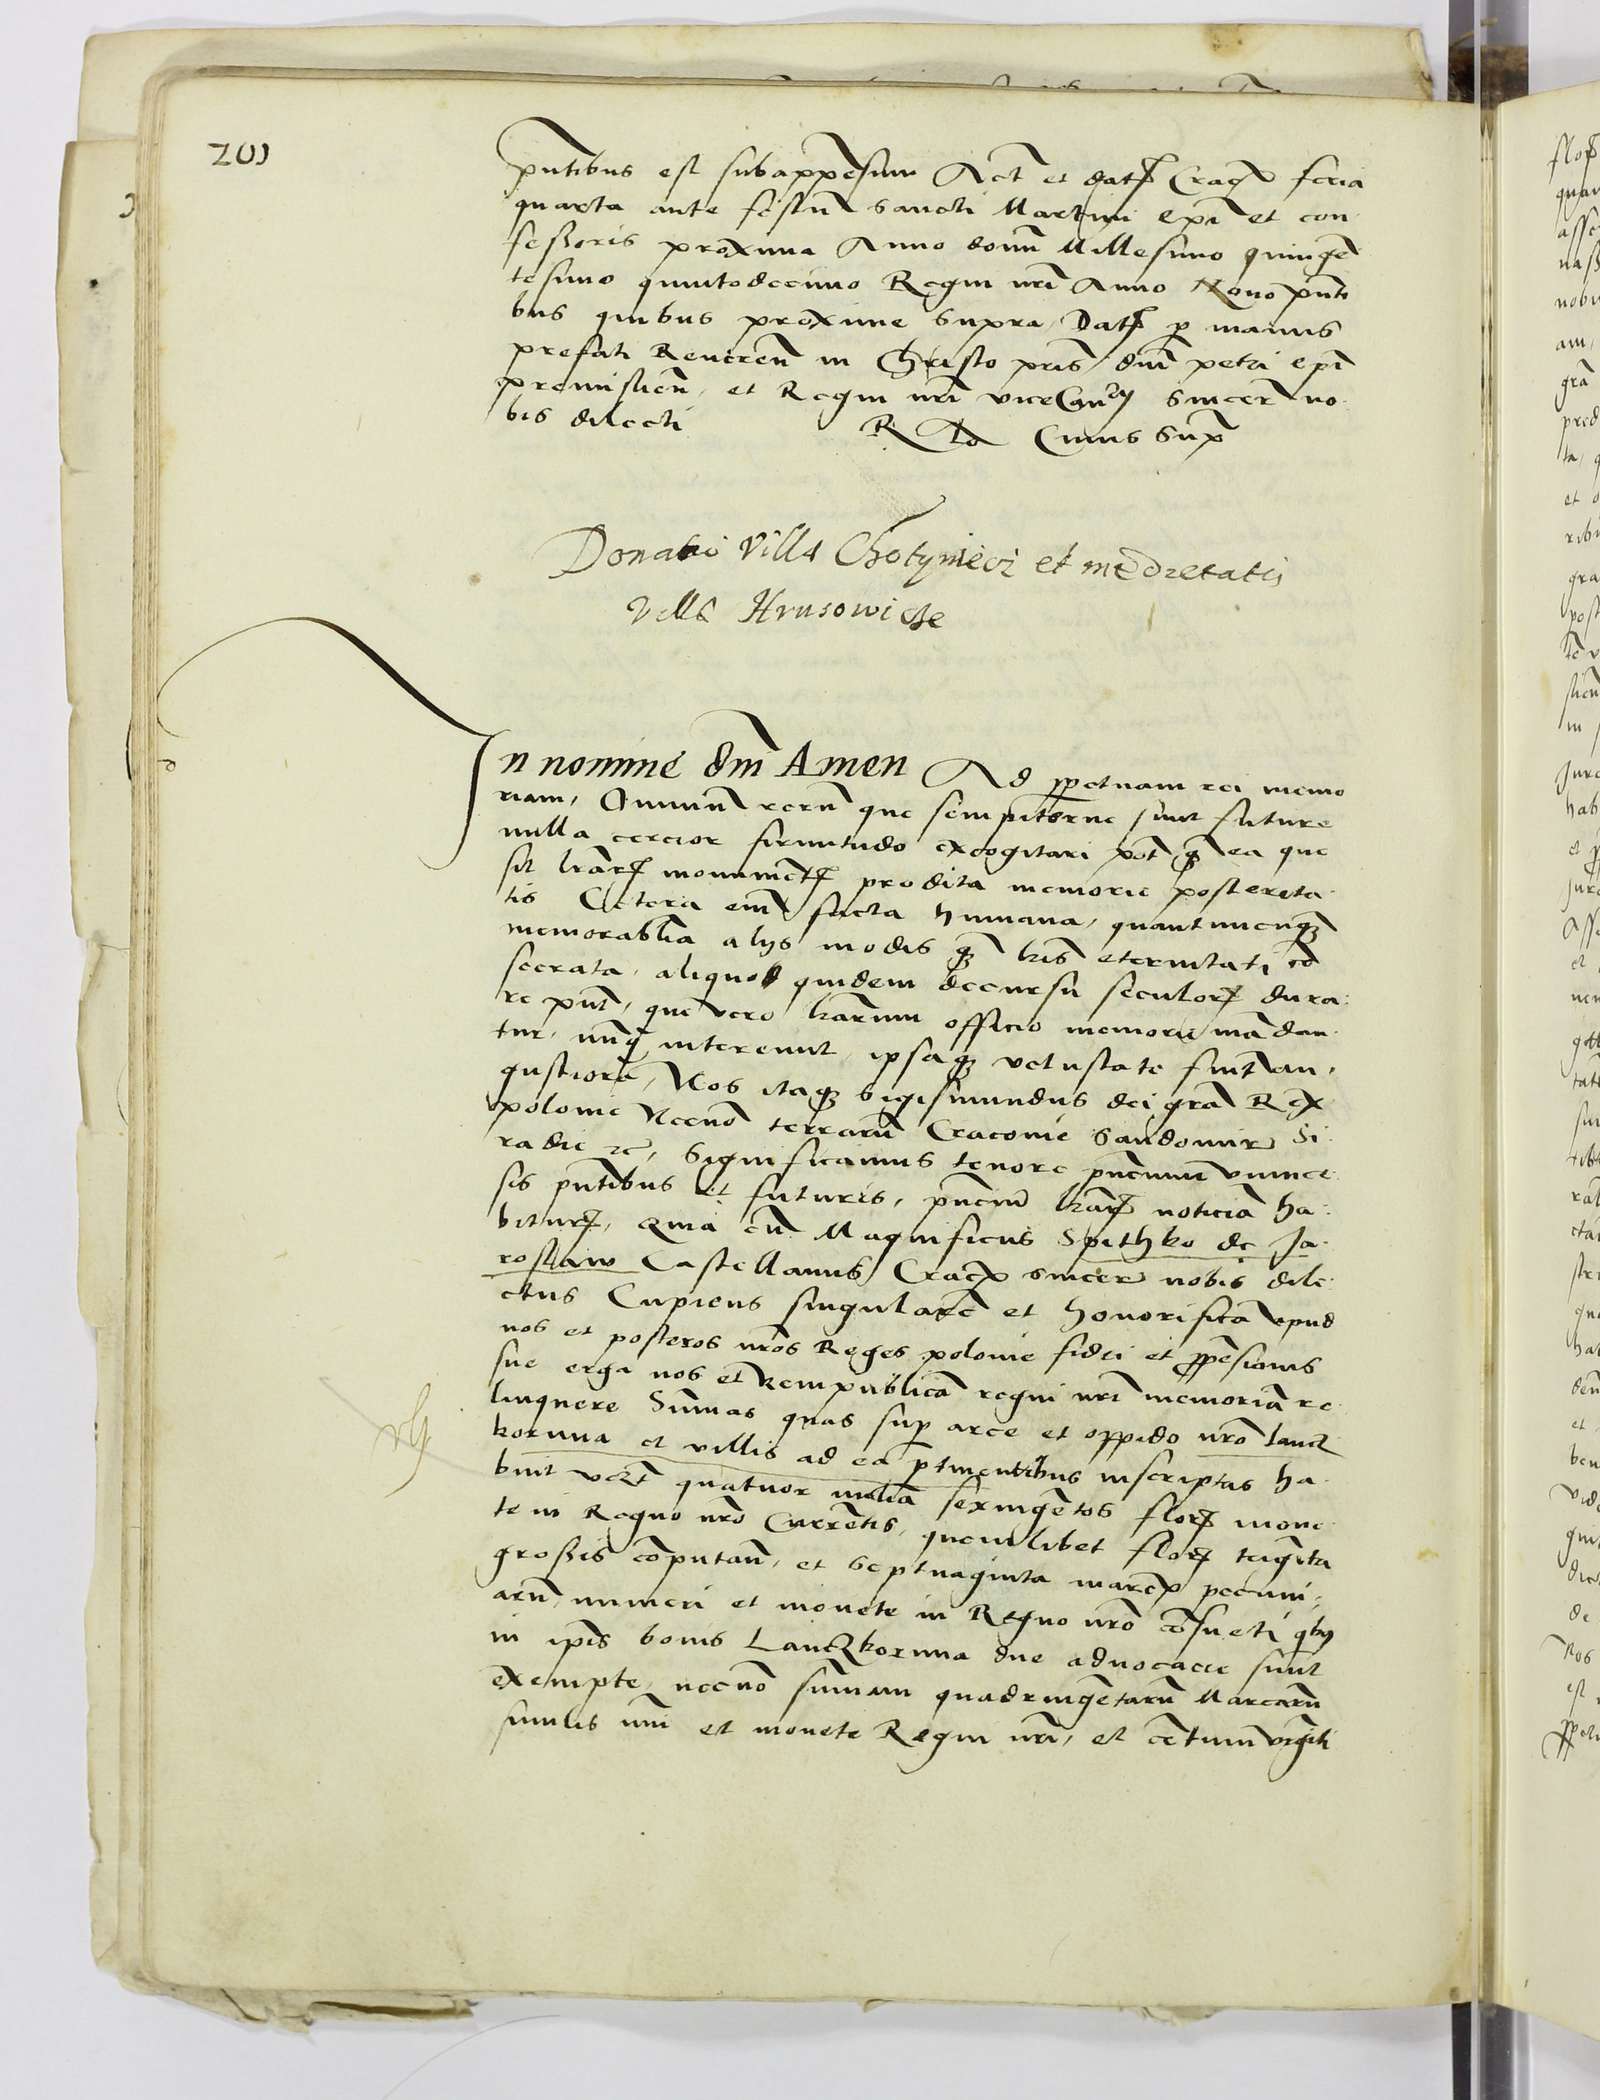 201
pntibus est subappensum Act et dat Crac feria
quarta ante festu Sancti Martini epi et con
fessoris proxima Anno domi Millesimo quingen
tesimo quintodecimo Regni nri Anno Nono pnti
bus quibus proxime supra Dat p manus
prefati Reueren in Christo pris dni petri epi
premislien et Regni nri viceCan sincer no
bis dilecti R Cuius Supra
Donatio Villa Chotyniecz et medietatis
Villa Hrusowicze
In nomine dni Amen Ad ppetuam rei memo
riam, Omniu reru que sempiterne sunt future
nulla cercior firmitudo excogitari pot qm ea que
sit lrar monimet prodita memorie postereta
tis Cetera eni facta humana, quantumcunq
memorablia alys modis qm lris eternitati con
secrata, aliquod quidem decursu seculor dura
re pnt, que vero lrarum officio memorie mandan
tur, nunq intereunt, ipsaq vetustate fiunt an
gustiora, Nos itaq Sigismundus dei gra Rex
polonie Necno terraru Cracouie Sandomir Si
radie zc, Significamus tenore pncium vniuer
sis pntibus et futuris, pncium lrar noticia ha
bitur, Quia cu Magnificus Spithko de Ja
roslaw Castellanus Crac sincer nobis dile
ctus Cupiens singulare et honorifica apud
nos et posteros nros Reges polonie fidei et ppensionis
sue erga nos et Rempublica regni nri memoria re
linquere Summas quas sup arce et oppido nro Lancz
koruna et villis ad ea ptinentibus inscriptas ha
buit vczt quatuor milia sexingetos flor mone
te in Regno nro Currentis, quemlibet flor triginta
grossis coputan, et septuaginta marc pecuni
aru numeri et monete in Regno nro consueti qbus
in ipis bonis Lanczkorunna due aduocacie sunt
exempte, necno summam quadringetaru Marcaru
similis nui et monete Regni nri, et centum viginti